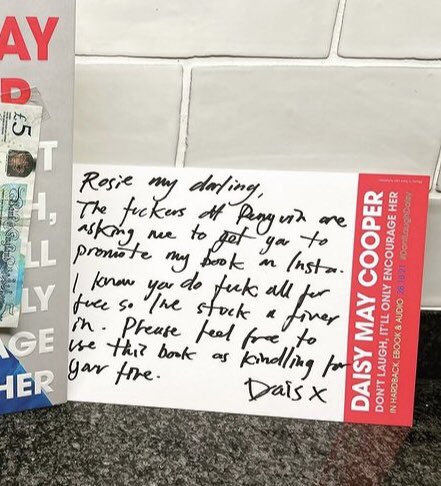 AY
R
£5
T
H,
LL
LY
AGE
HER
Rosie my darling,
The fuckers at Penguin are
asking me to get you to
promote my book on Insta.
I know you do fuck all for
free so I've stuck a fiver
in. Please feel free to
use this book as kindling for
your fire.
Dais x
DAISY MAY COOPER
DON'T LAUGH, IT'LL ONLY ENCOURAGE HER
IN HARDBACK, EBOOK & AUDIO 28.10.21 #DontLaughDaisy